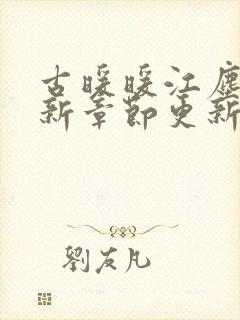 古暖暖江塵
新章節更新
劉友凡